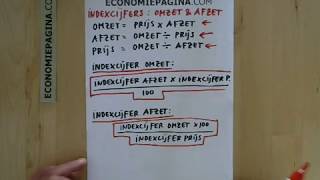 ECONOMIEPAGINA.COM
INDEXCIJFERS: OMZET & AFZET
OMZET = PRIJS X AFZET ←
AFZET = OMZET ÷ PRIJS ←
PRIJS = OMZET ÷ AFZET ←
INDEXCIJFER OMZET:
INDEXCIJFER AFZET X INDEXCIJFER P.
100
INDEXCIJFER AFZET:
INDEXCIJFER OMZET X 100
INDEXCIJFER PRIJS
ECONOMIEPAGINA.COM